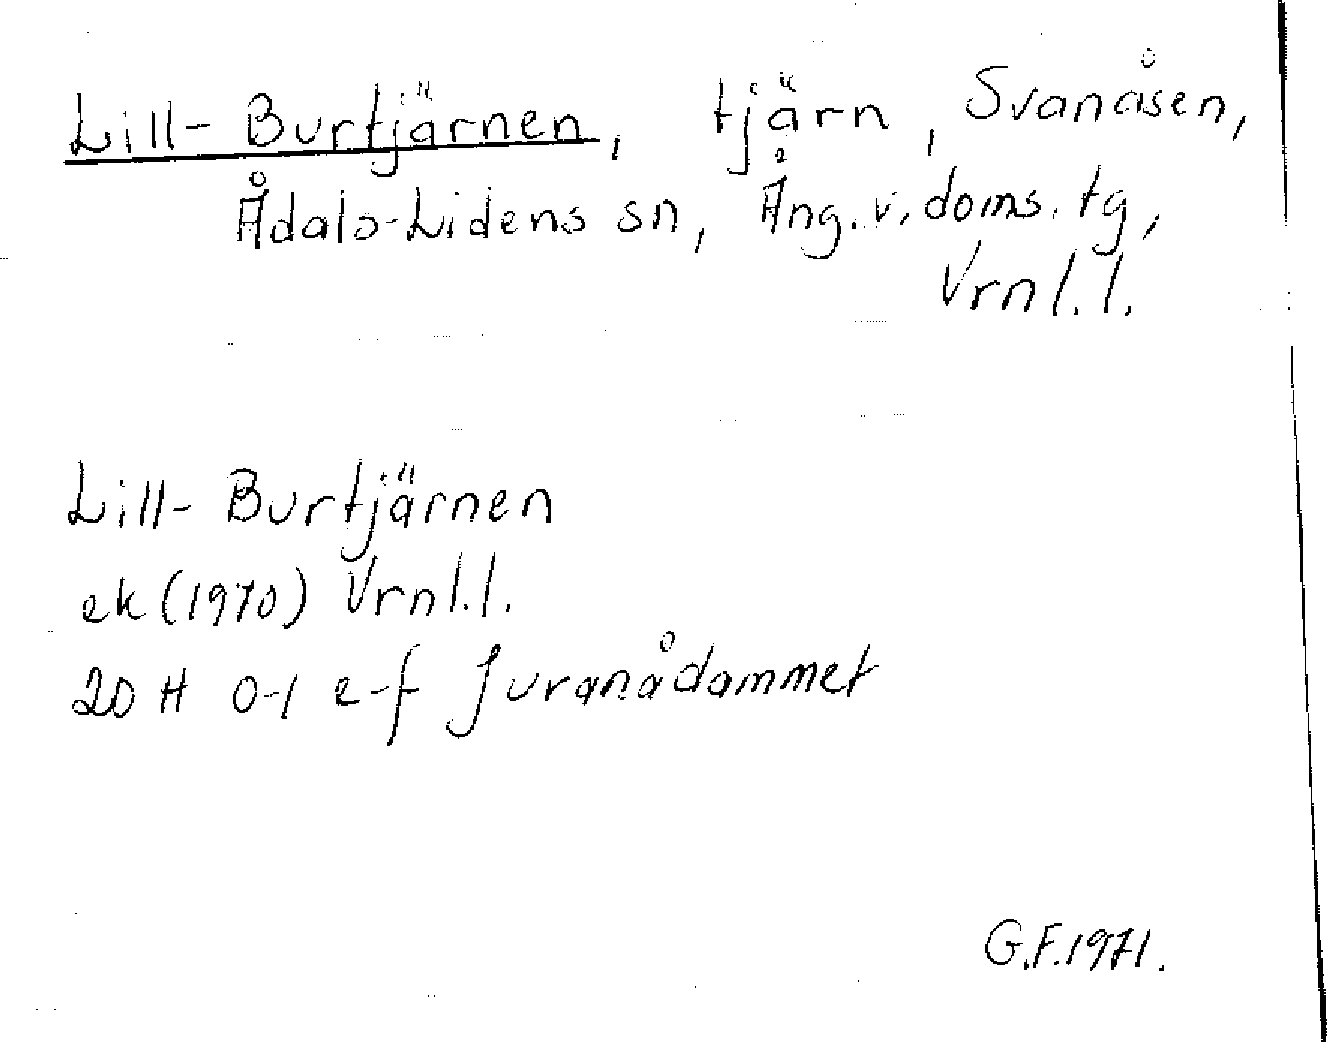 Lill-Burtjärnen, tjärn, Svanåsen,
Ådals-Lidens sn, Ång.v.doms.tg,
Vrnl.l.
Lill-Burtjärnen
ek(1970) Vrnl.l.
20 H 0-1 e-f Juranådammet
G.F.1971.